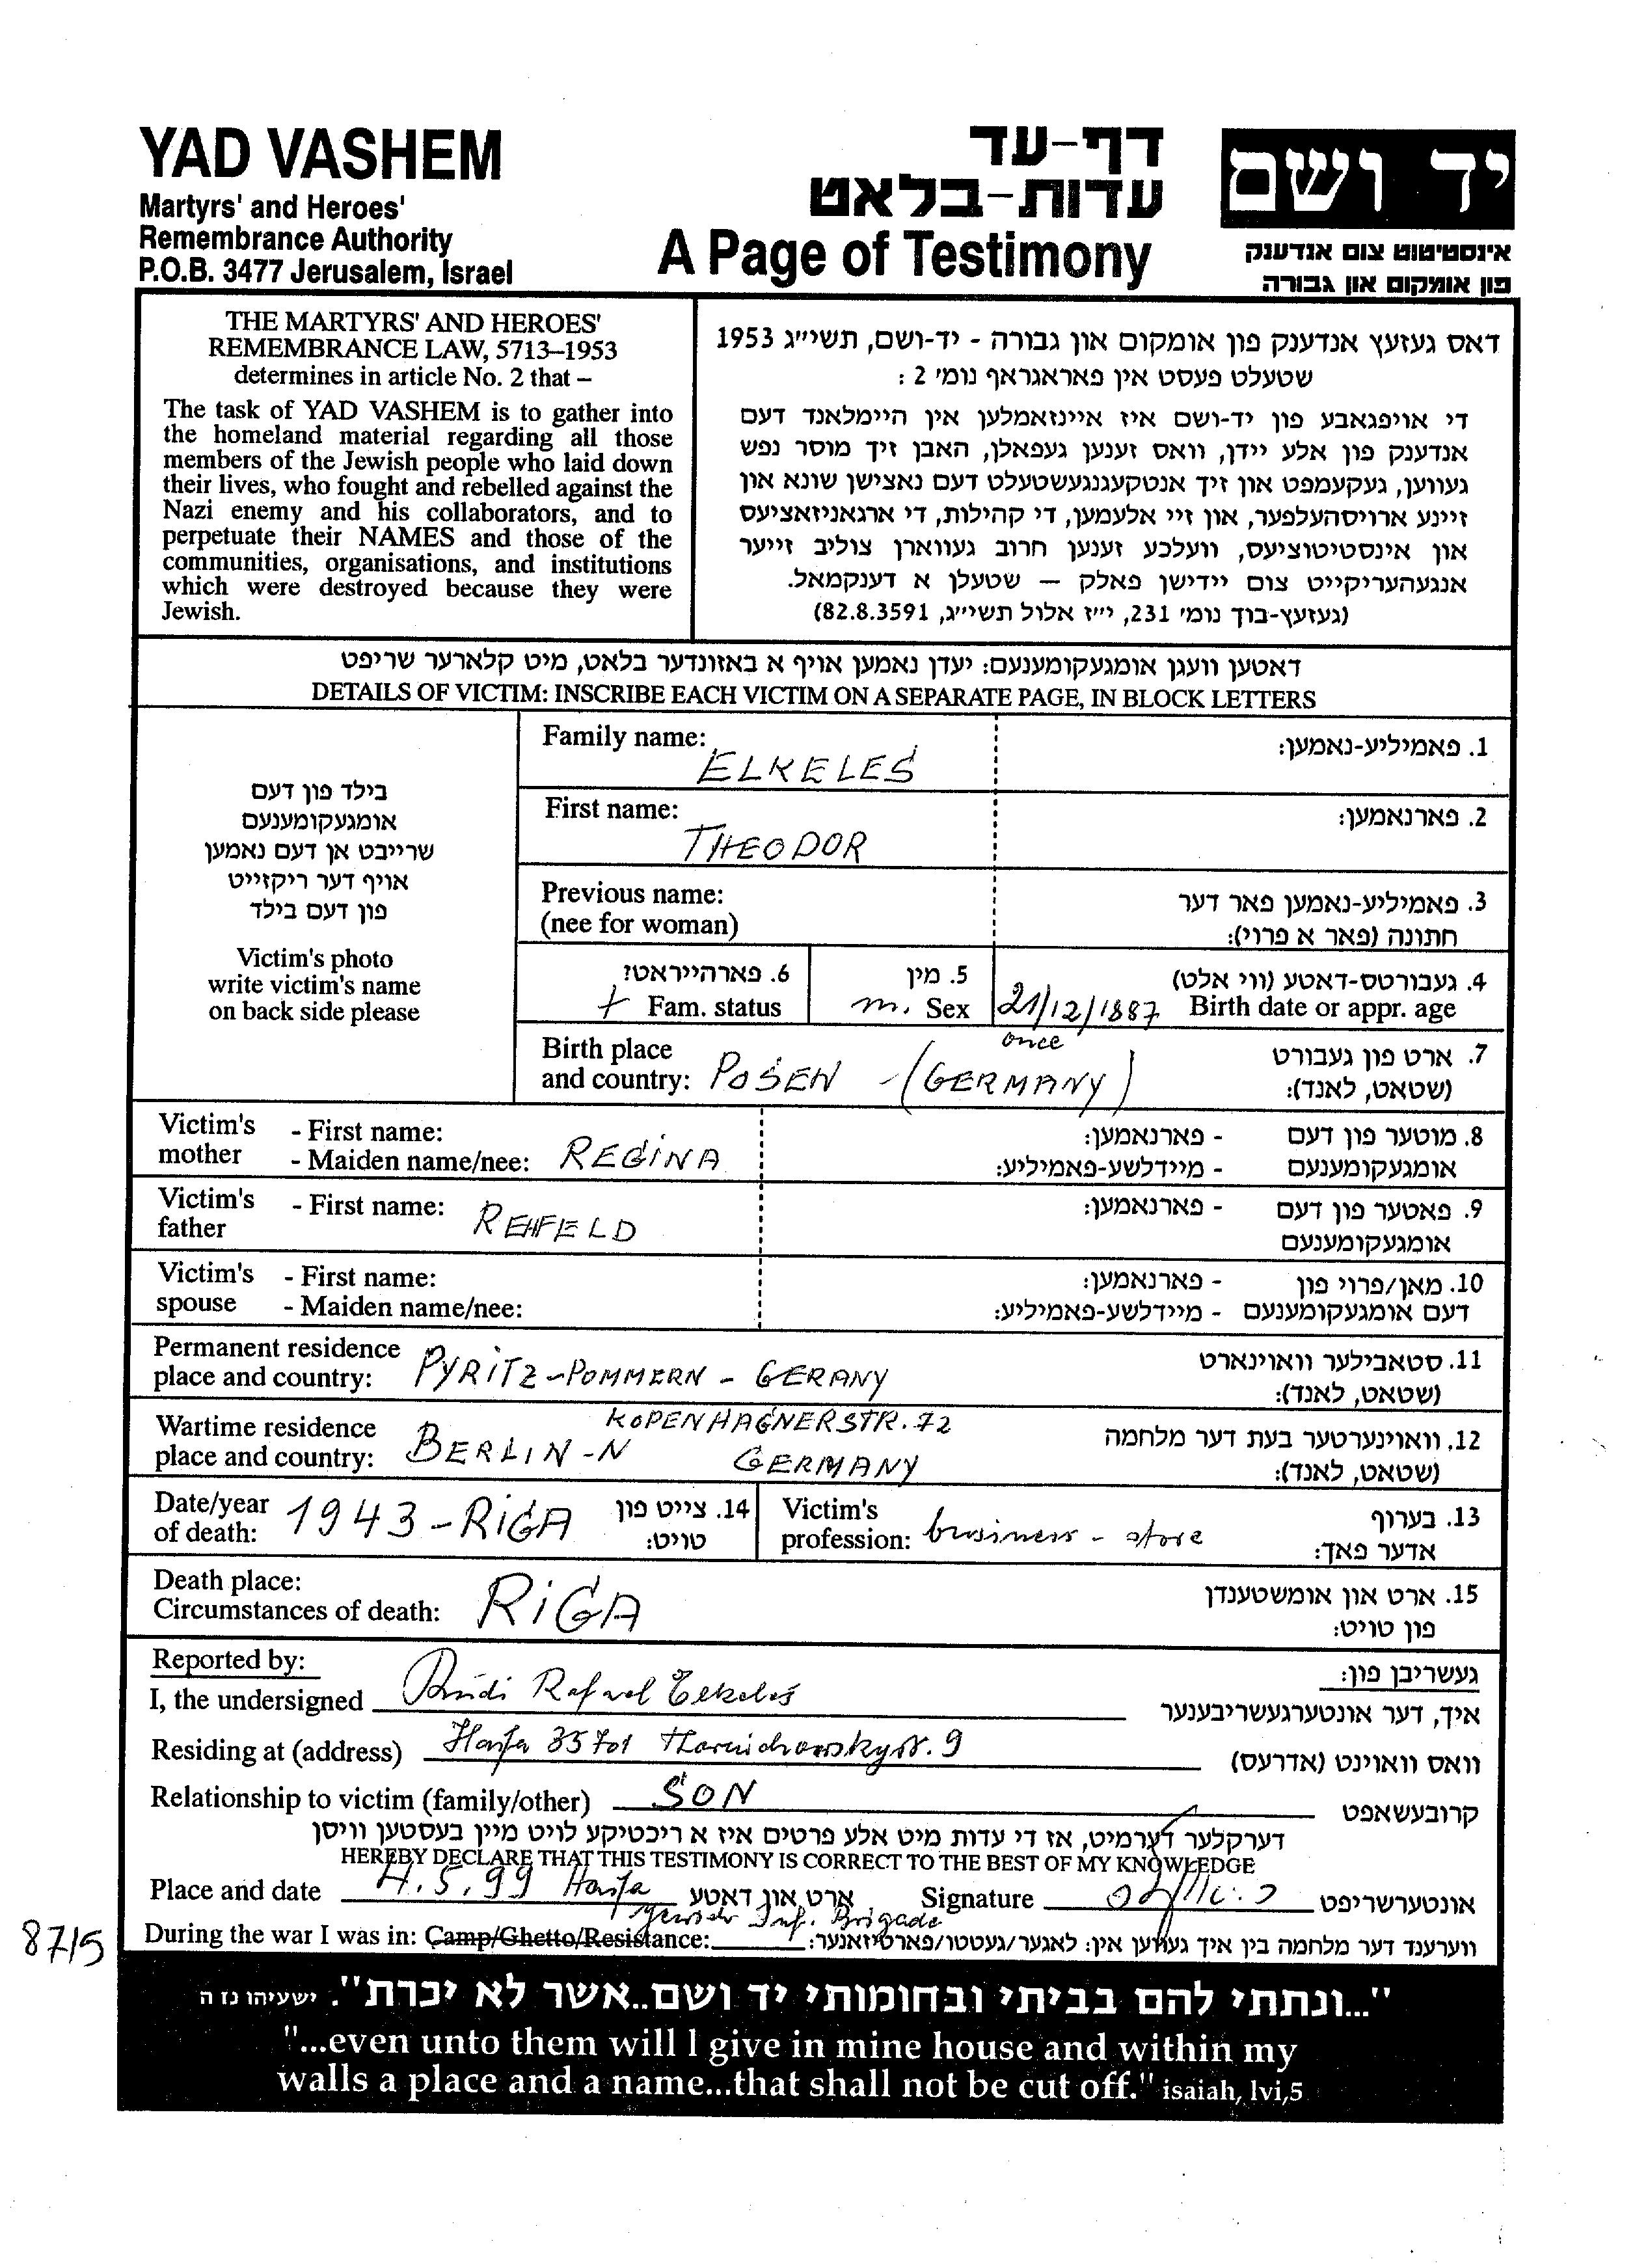 YAD VASHEM
Martyrs' and Heroes'
Remembrance Authority
P.O.B. 3477 Jerusalem, Israel
דף-עד
עדות-בלאט
A Page of Testimony
יד ושם
אינסטיטוט צום אנדענק
פון אומקום און גבורה
THE MARTYRS' AND HEROES'
REMEMBRANCE LAW, 5713–1953
determines in article No. 2 that –
The task of YAD VASHEM is to gather into
the homeland material regarding all those
members of the Jewish people who laid down
their lives, who fought and rebelled against the
Nazi enemy and his collaborators, and to
perpetuate their NAMES and those of the
communities, organisations, and institutions
which were destroyed because they were
Jewish.
דאס געזעץ אנדענק פון אומקום און גבורה - יד-ושם, תשי״ג 1953
שטעלט פעסט אין פאראגראף נומ׳ 2 :
די אויפגאבע פון יד-ושם איז איינזאמלען אין היימלאנד דעם
אנדענק פון אלע יידן, וואס זענען געפאלן, האבן זיך מוסר נפש
געווען, געקעמפט און זיך אנטקעגנגעשטעלט דעם נאצישן שונא און
זיינע ארויסהעלפער, און זיי אלעמען, די קהילות, די ארגאניזאציעס
און אינסטיטוציעס, וועלכע זענען חרוב געווארן צוליב זייער
אנגעהעריקייט צום יידישן פאלק — שטעלן א דענקמאל.
(געזעץ-בוך נומ׳ 231, י״ז אלול תשי״ג, 82.8.3591)
דאטען וועגן אומגעקומענעם: יעדן נאמען אויף א באזונדער בלאט, מיט קלארער שריפט
DETAILS OF VICTIM: INSCRIBE EACH VICTIM ON A SEPARATE PAGE, IN BLOCK LETTERS
בילד פון דעם
אומגעקומענעם
שרייבט אן דעם נאמען
אויף דער ריקזייט
פון דעם בילד
Victim's photo
write victim's name
on back side please
Family name: ELKELES 1. פאמיליע-נאמען:
First name: THEODOR 2. פארנאמען:
Previous name: 3. פאמיליע-נאמען פאר דער
(nee for woman) חתונה (פאר א פרוי):
6. פארהייראט? 5. מין 4. געבורטס-דאטע (ווי אלט)
+ Fam. status m. Sex 21/12/1887 Birth date or appr. age
once
Birth place 7. ארט פון געבורט
and country: POSEN - (GERMANY) (שטאט, לאנד):
Victim's - First name: - פארנאמען: 8. מוטער פון דעם
mother - Maiden name/nee: REGINA - מיידלשע-פאמיליע: אומגעקומענעם
Victim's - First name: REHFELD - פארנאמען: 9. פאטער פון דעם
father אומגעקומענעם
Victim's - First name: - פארנאמען: 10. מאן/פרוי פון
spouse - Maiden name/nee: - מיידלשע-פאמיליע: דעם אומגעקומענעם
Permanent residence 11. סטאבילער וואוינארט
place and country: PYRITZ-POMMERN - GERANY (שטאט, לאנד):
Wartime residence KOPENHAGNERSTR. 72 12. וואוינערטער בעת דער מלחמה
place and country: BERLIN-N GERMANY (שטאט, לאנד):
Date/year 14. צייט פון Victim's 13. בערוף
of death: 1943-RIGA טויט: profession: business - store אדער פאך:
Death place: 15. ארט און אומשטענדן
Circumstances of death: RIGA פון טויט:
Reported by: געשריבן פון:
I, the undersigned Rudi Rafael Elkeles איך, דער אונטערגעשריבענער
Residing at (address) Haifa 35701 9 וואס וואוינט (אדרעס)
Relationship to victim (family/other) SON קרובעשאפט
דערקלער דערמיט, אז די עדות מיט אלע פרטים איז א ריכטיקע לויט מיין בעסטען וויסן
HEREBY DECLARE THAT THIS TESTIMONY IS CORRECT TO THE BEST OF MY KNOWLEDGE
Place and date 4.5.99 Haifa ארט און דאטע Signature אונטערשריפט
Jewish Inf. Brigade
During the war I was in: Camp/Ghetto/Resistance: ווערענד דער מלחמה בין איך געווען אין: לאגער/געטטו/פארטיזאנער:
87/5
"...ונתתי להם בביתי ובחומותי יד ושם..אשר לא יכרת". ישעיהו נז ה
"...even unto them will I give in mine house and within my
walls a place and a name...that shall not be cut off." isaiah, lvi,5